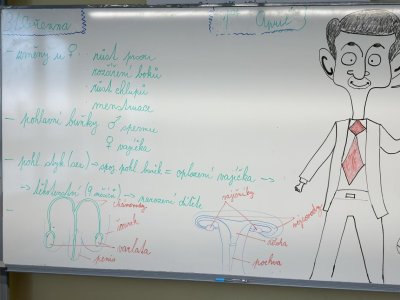 - změny u ♀ .. růst prsou
rozšíření boků
růst chlupů
menstruace
- pohlavní buňky ♂ spermie
♀ vajíčka
- pohl. styk (sex) → spoj. pohl. buněk = oplození vajíčka →
→ těhotenství (9 měsíců) → narození dítěte
-
chámovody
vaječníky
vejcovody
šourek
varlata
děloha
penis
pochva